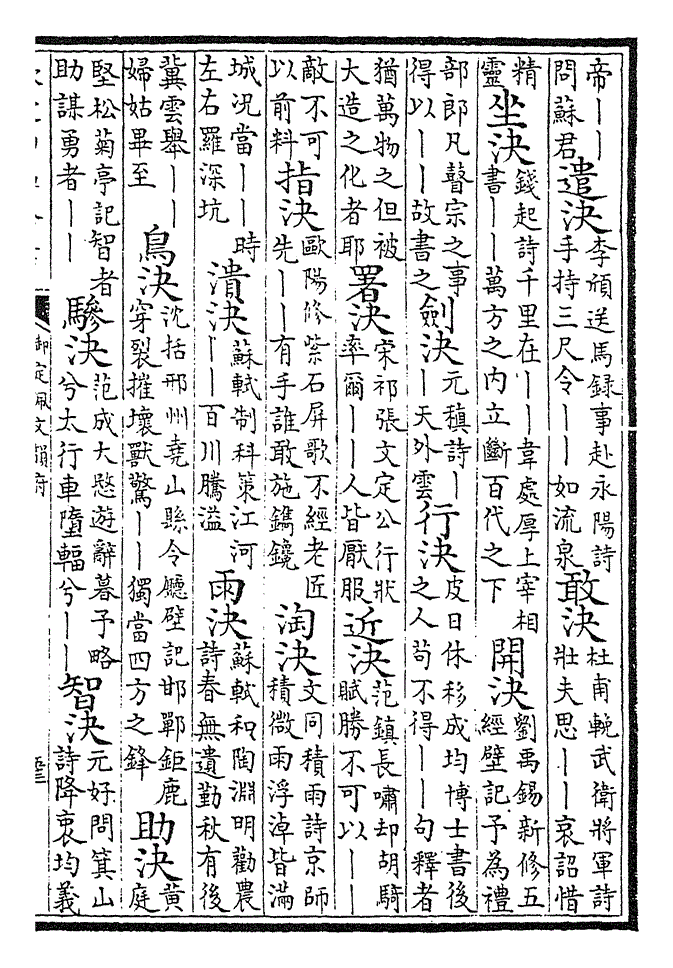 帝〡〡問蘇君 遣決 李頎送馬錄事赴永陽詩手持三尺令〡〡如流泉 敢決 杜甫輓武衛將軍詩壯夫思〡〡哀詔惜
精靈 坐決 錢起詩千里在〡〡韋處厚上宰相書〡〡萬方之內立斷百代之下 開決 劉禹錫新修五經壁記予為禮
部郎凡瞽宗之事得以〡〡故書之 劍決 元稹詩〡〡天外雲 行決 皮日休移成均博士書後之人苟不得〡〡句釋者
猶萬物之但被大造之化者耶 署決 宋祁張文定公行狀率爾〡〡人皆厭服 近決 范鎮長嘯却胡騎賦勝不可以〡〡
敵不可以前料 指決 歐陽修紫石屏歌不經老匠先〡〡有手誰敢施鐫鑱 淘決 文同積雨詩京師積微雨浮淖皆滿
城況當〡〡時左右羅深坑 潰決 蘇軾制科策江河〡〡百川騰溢 雨決 蘇軾和陶淵明勸農詩春無遺勤秋有後
冀雲舉〡〡婦姑畢至 鳥決 沈括邢州堯山縣令廳壁記邯鄲鉅鹿穿裂摧壞獸驚〡〡獨當四方之鋒 助決 黃庭
堅松菊亭記智者助謀勇者〡〡 驂決 范成大愍遊辭暮予略兮太行車墮輻兮〡〡 智決 元好問箕山詩降衷均義
御定佩文韻府